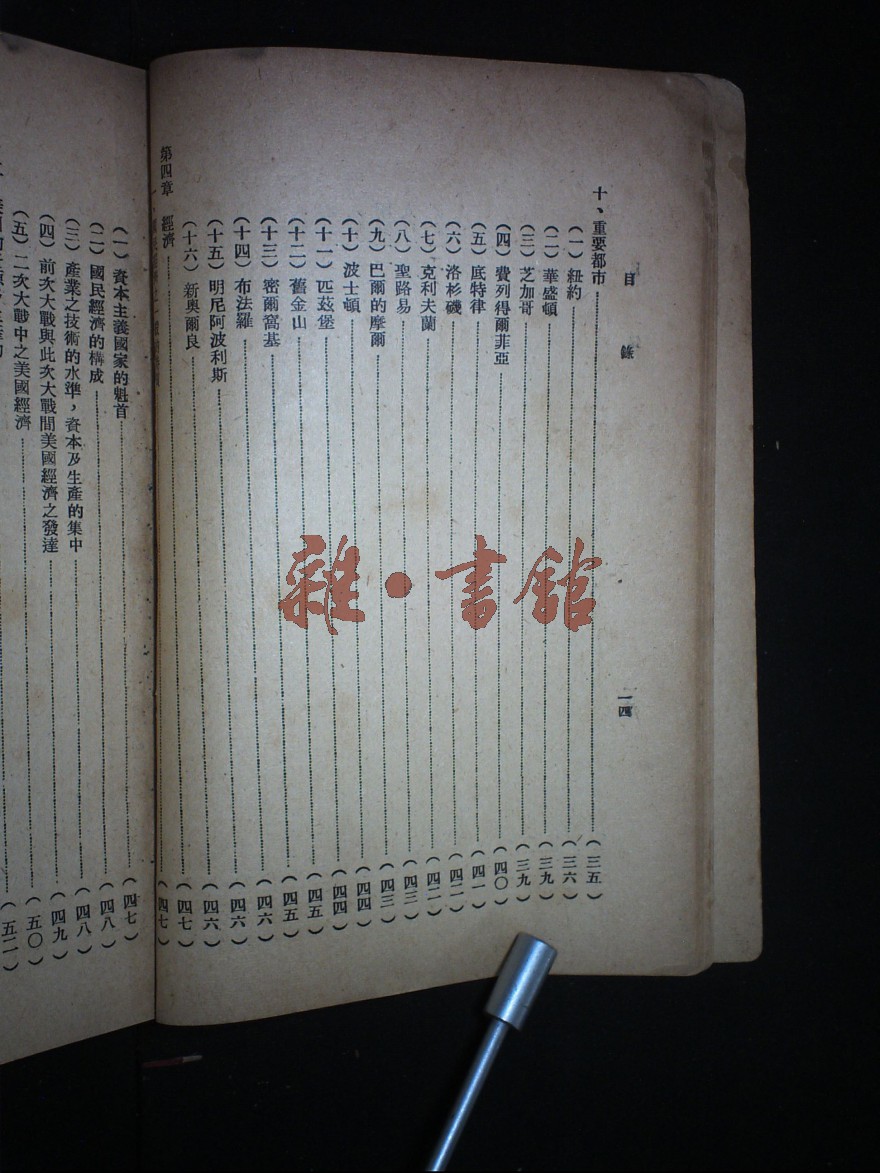 目錄
一四
十、重要都市(三五)
(一)紐約(三六)
(二)華盛頓(三九)
(三)芝加哥(三九)
(四)費列得爾菲亞(四〇)
(五)底特律(四一)
(六)洛杉磯(四二)
(七)克利夫蘭(四二)
(八)聖路易(四三)
(九)巴爾的摩爾(四三)
(十)波士頓(四四)
(十一)匹茲堡(四四)
(十二)舊金山(四五)
(十三)密爾窩基(四五)
(十四)布法羅(四六)
(十五)明尼阿波利斯(四六)
(十六)新奧爾良(四六)
第四章 經濟(四七)
(四七)
(一)資本主義國家的魁首(四七)
(二)國民經濟的構成(四八)
(三)產業之技術的水準,資本及生產的集中(四八)
(四)前次大戰與此次大戰間美國經濟之發達(四九)
(五)二次大戰中之美國經濟(五〇)
(五二)
雜·書館